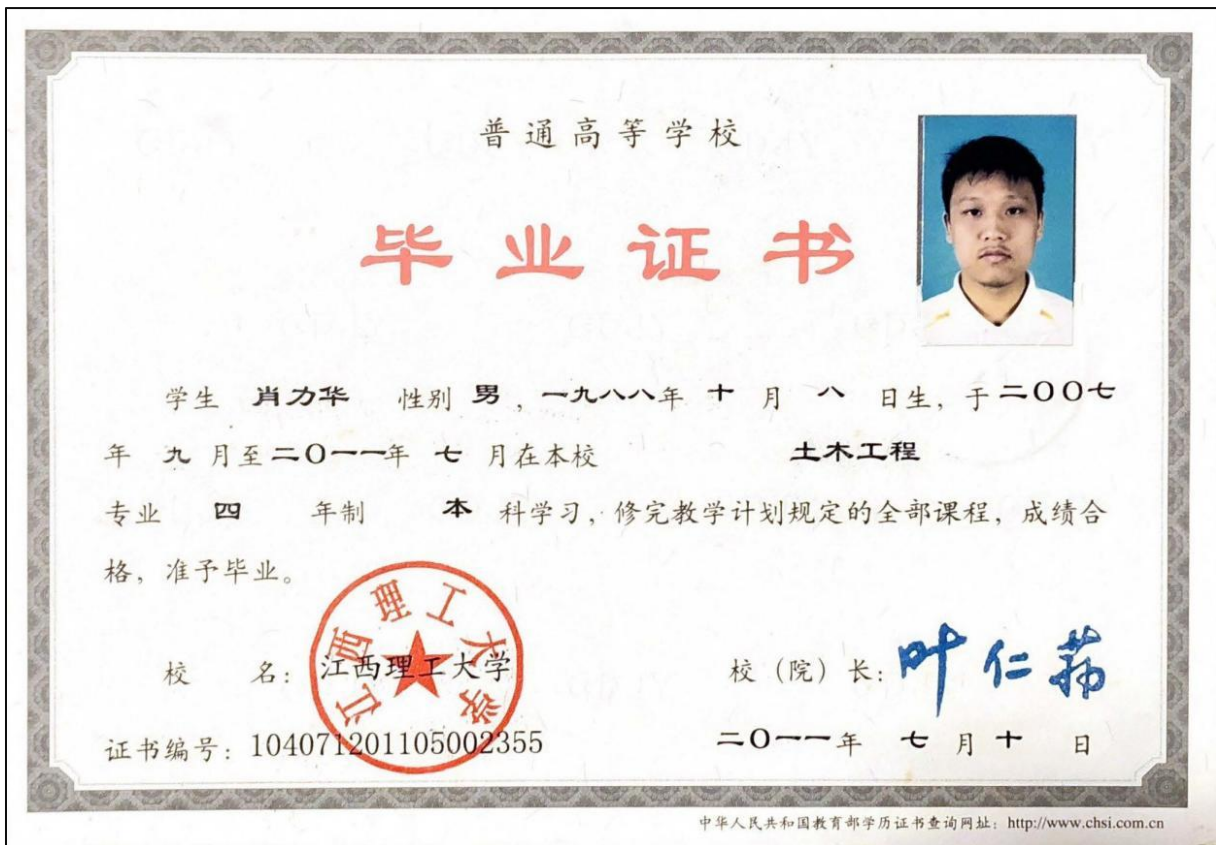 普通高等学校
毕业证书
学生 肖力华 性别 男，一九八八年 十 月 八 日生，于二〇〇七
年 九 月至二〇一一年 七 月在本校 土木工程
专业 四 年制 本 科学习，修完教学计划规定的全部课程，成绩合
格，准予毕业。
江西理工大学
校 名：江西理工大学
校（院）长：叶仁荪
证书编号：104071201105002355
二〇一一年 七 月 十 日
中华人民共和国教育部学历证书查询网址：http://www.chsi.com.cn